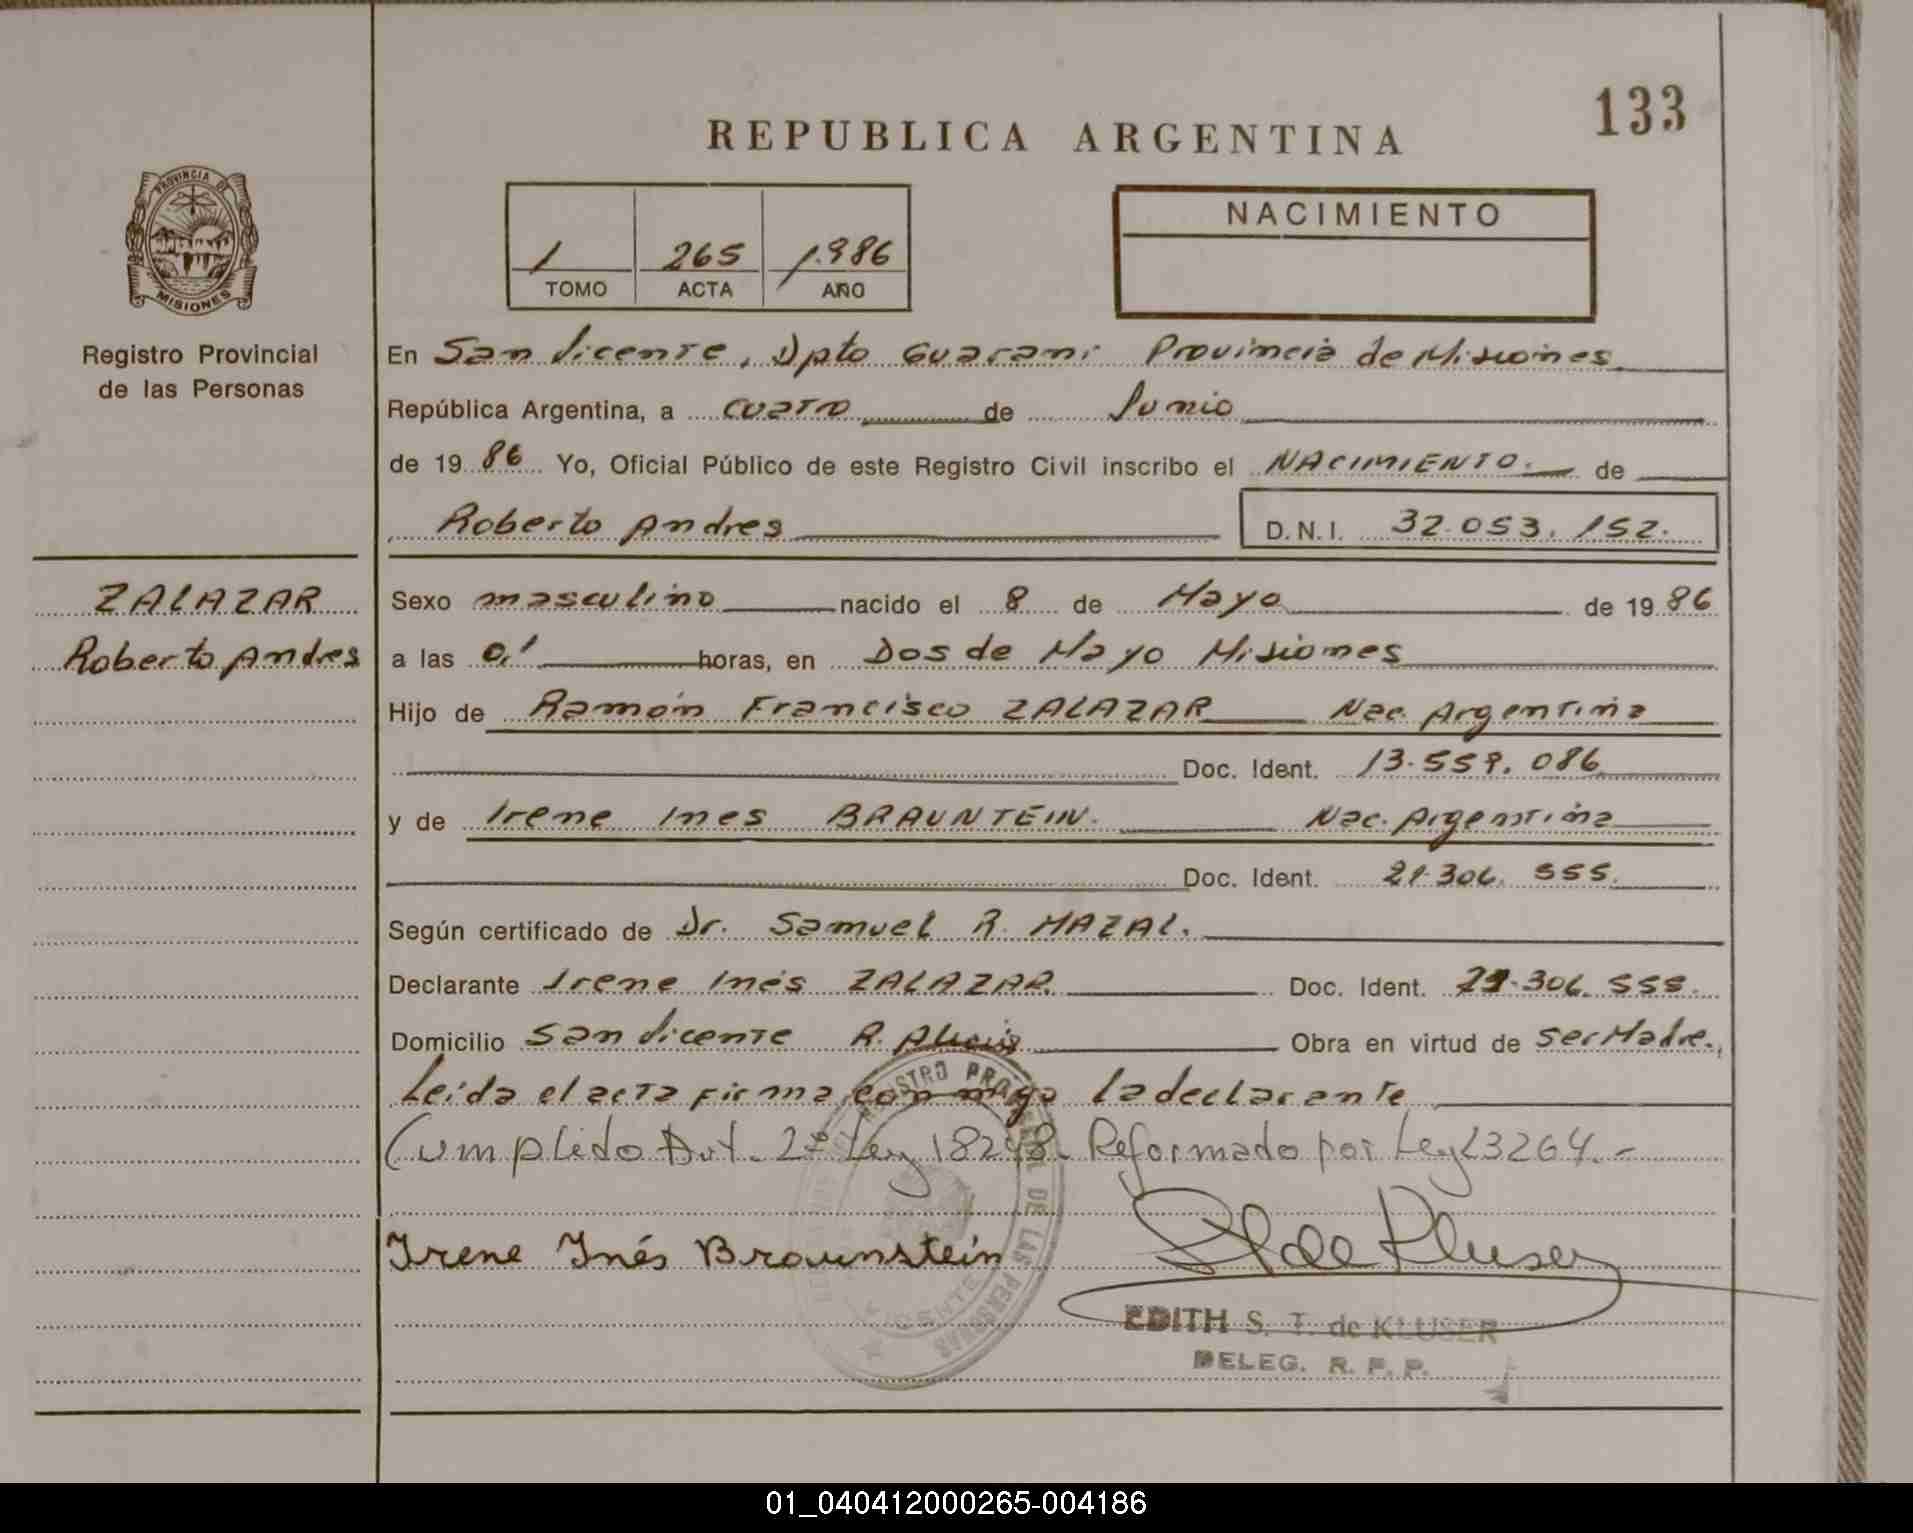 133
REPUBLICA ARGENTINA
PROVINCIA DE
MISIONES
Registro Provincial
de las Personas
1 265 1.986
TOMO ACTA AÑO
NACIMIENTO
En San Vicente, Dpto Guarani Provincia de Misiones
República Argentina, a cuatro de Junio
de 1986 Yo, Oficial Público de este Registro Civil inscribo el NACIMIENTO. de
Roberto Andres D.N.I. 32.053.152.
ZALAZAR
Roberto Andres
Sexo masculino nacido el 8 de Mayo de 1986
a las horas, en Dos de Mayo Misiones
Hijo de Ramón Francisco ZALAZAR Nac. Argentina
Doc. Ident. 13.559.086
y de Irene Ines BRAUNTEIN. Nac. Argentina
Doc. Ident. 21.306.555.
Según certificado de Dr. Samuel R. MAZAL.
Declarante Irene Inés ZALAZAR Doc. Ident. 21.306.555.
Domicilio San Vicente R. Obra en virtud de ser Madre.
Leida el acta firma con migo la declarante
Cumplido Art. 2º Ley 18248. Reformado por Ley 23264.-
REGISTRO PROVINCIAL DE LAS PERSONAS
Irene Inés Braunstein
de Kluser
EDITH S. T. de KLUSER
DELEG. R. P. P.
01_040412000265-004186